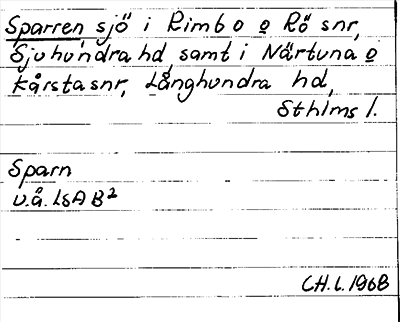 Sparren sjö i Rimbo o Rö snr,
Sjuhundra hd, samt i Närtuna o
Kårsta snr, Långhundra hd,
Sthlms l.
Sparn
u.å. LSA B²
CH. l. 1968